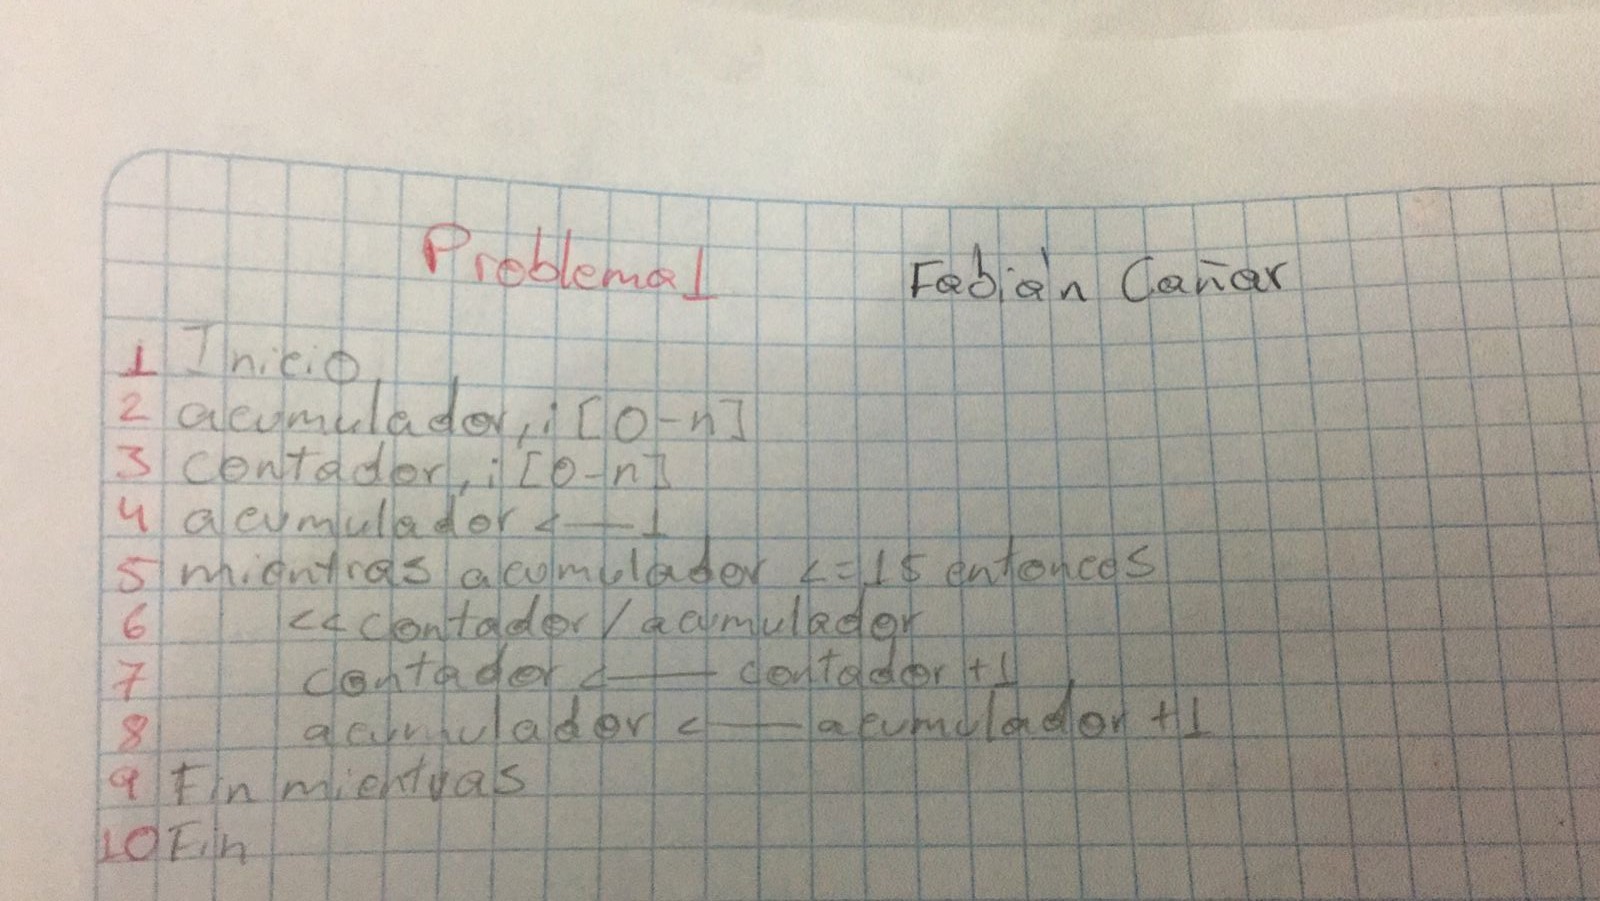 Problema 1 Fabián Cañar
1 Inicio
2 acumulador, i [0-n]
3 contador, i [0-n]
4 acumulador <— 1
5 mientras acumulador <= 15 entonces
6 << contador / acumulador
7 contador <— contador + 1
8 acumulador <— acumulador + 1
9 Fin mientras
10 Fin